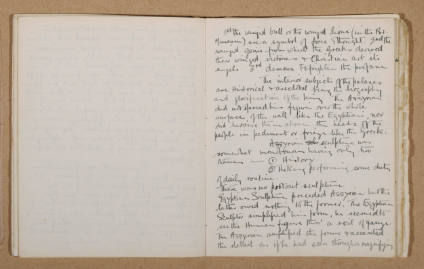 1st the winged bull or the winged lions (in the Brit
Museum) are a symbol of force & thought, 2nd the
winged genii from which the Greeks derived
their winged victories & Christian art its
angels 3rd demons
The interior subjects of the palaces
are historical & anecdotal being the biography
and glorification of the king. The Assyrian
did not spread his figures over the whole
surface of the wall like the Egyptians, nor
did he raise them above the heads of the
people in pediment or frieze like the Greeks.
Assyrian sculpture was
somewhat monotonous having only two
themes — ① History
② Nothing performing some duty
of daily routine
There was no portrait sculpture
Egyptian Sculpture preceded Assyrian but the
latter owed nothing to the former. The Egyptian
Sculptor simplified his form, he seemed to
see the Human figure thro' a veil of gauze.
The Assyrian amplified the forms & accented
the detail as if he had seen through a magnifying